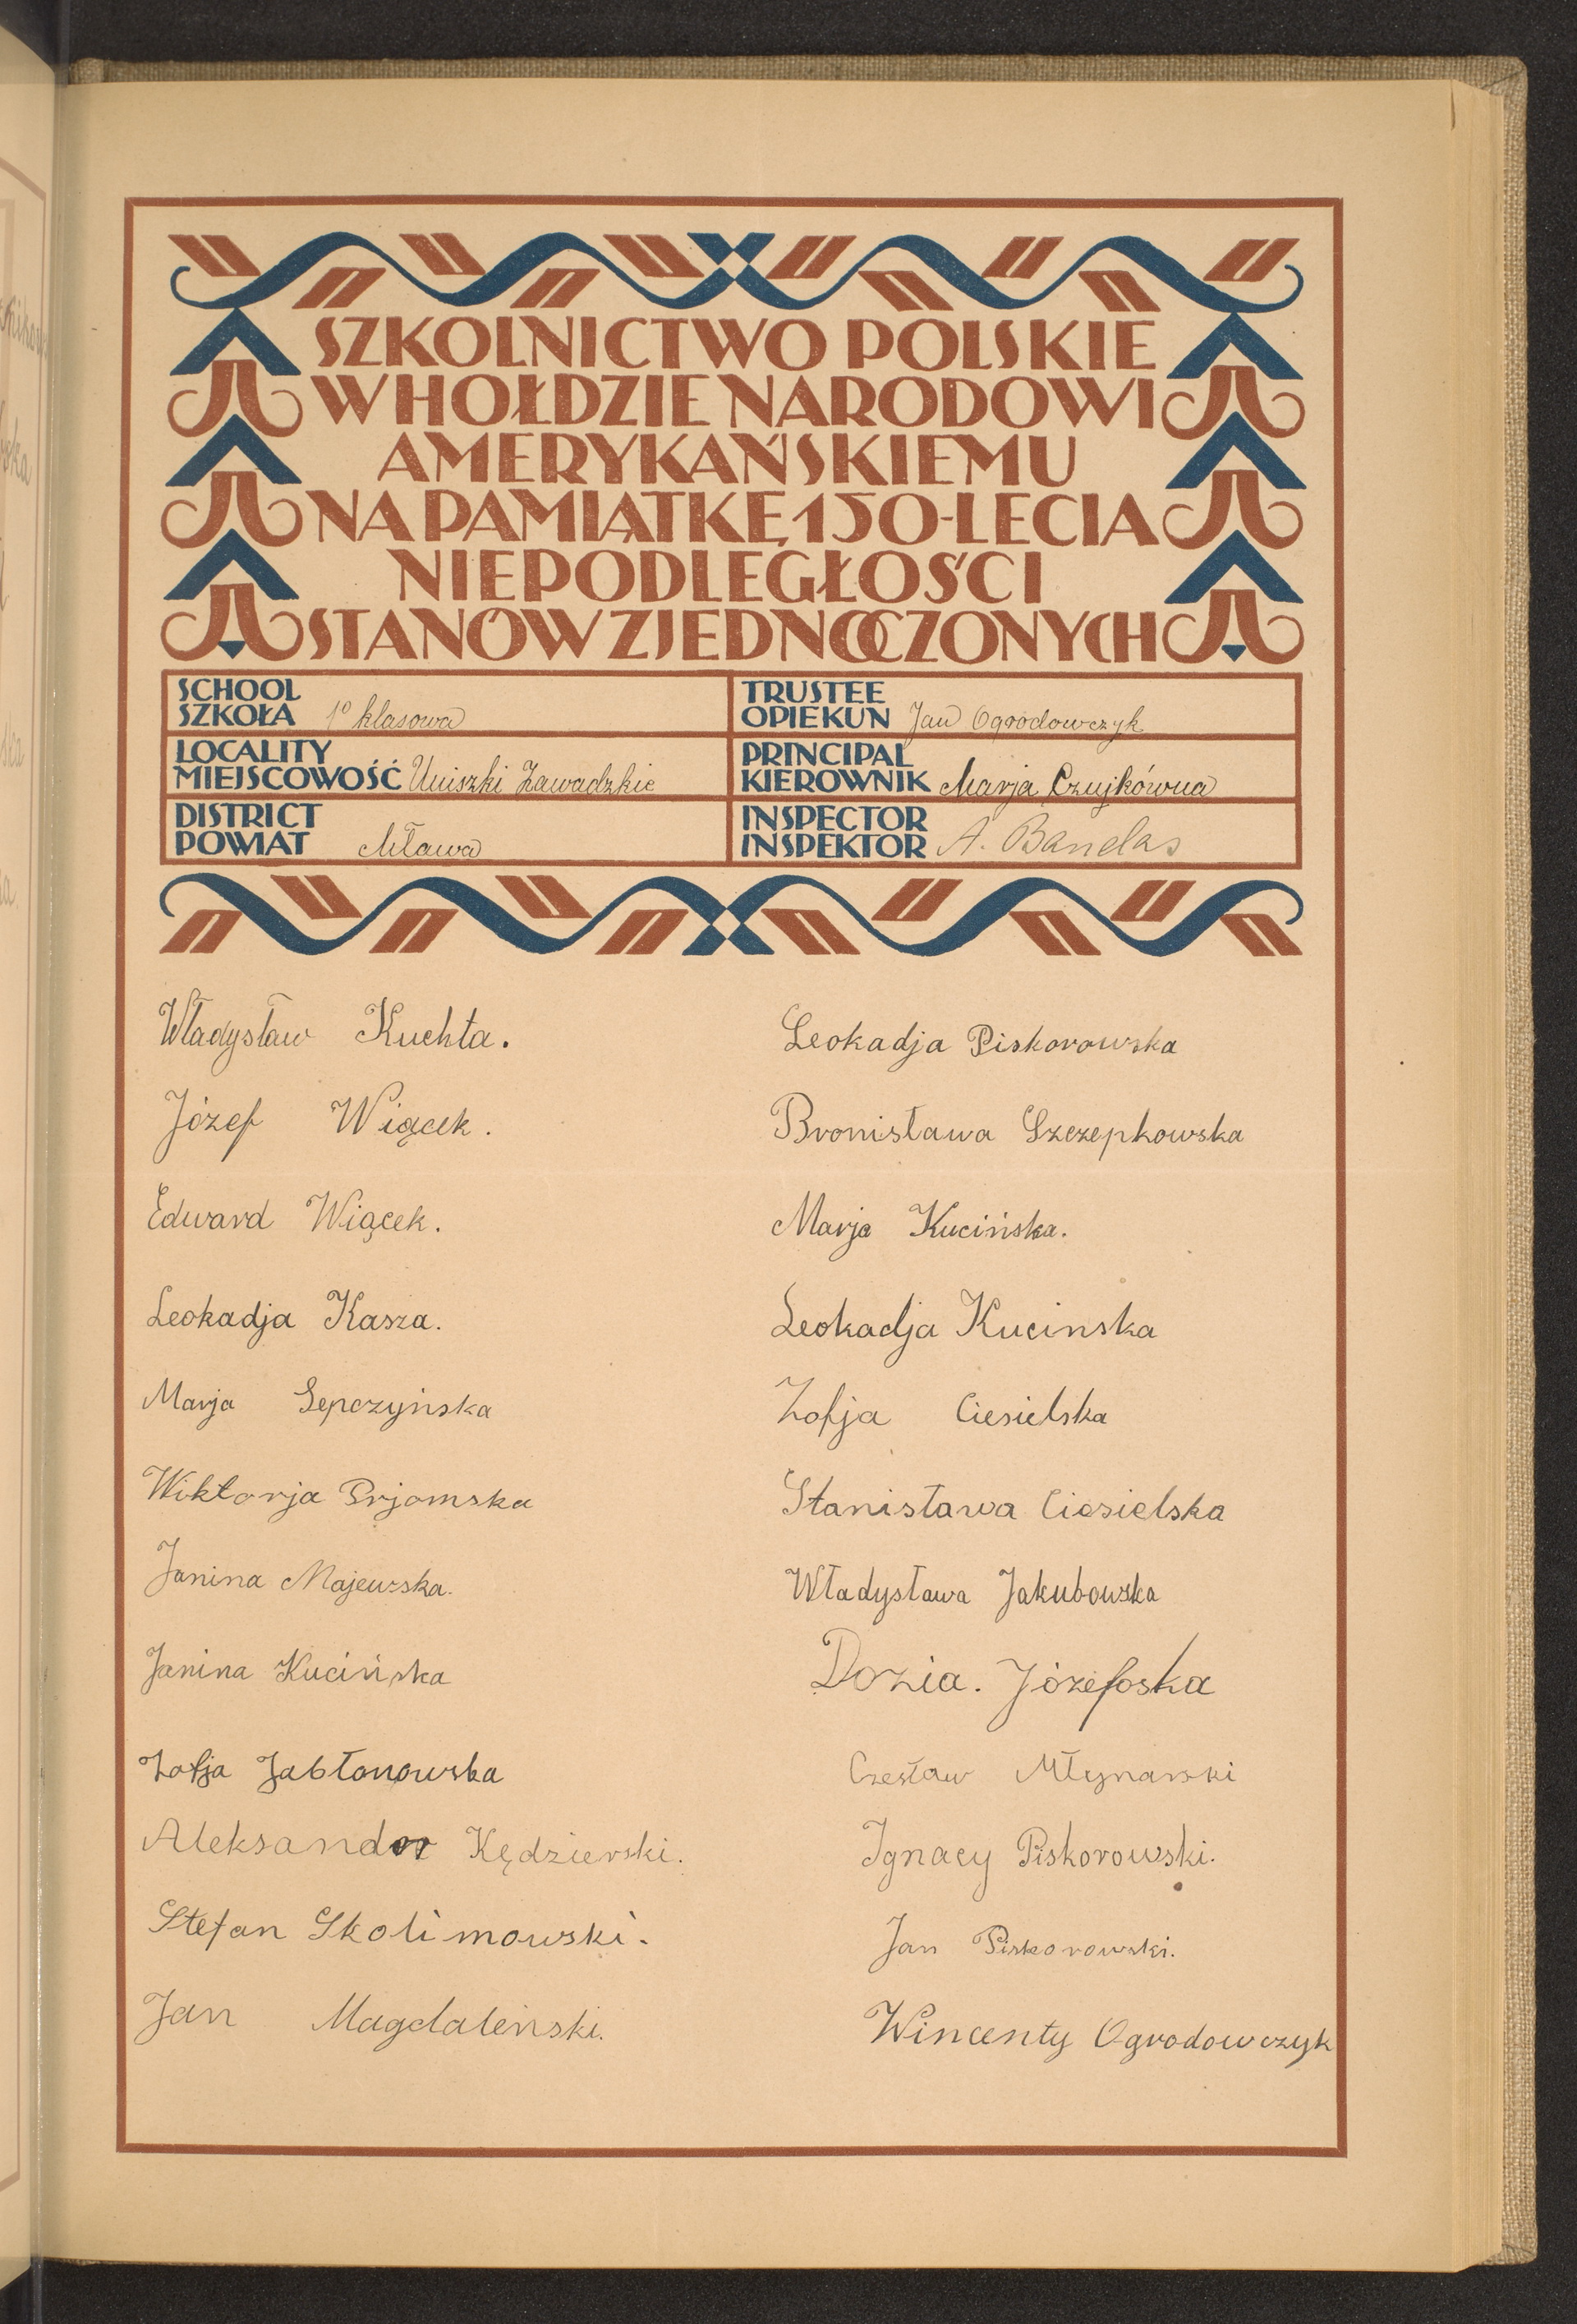 SZKOLNICTWO POLSKIE
W HOŁDZIE NARODOWI
AMERYKAŃSKIEMU
NA PAMIĄTKĘ 150-LECIA
NIEPODLEGŁOŚCI
STANÓW ZJEDNOCZONYCH
SCHOOL
SZKOŁA 1º klasowa
TRUSTEE
OPIEKUN Jan Ogrodowczyk
LOCALITY
MIEJSCOWOŚĆ Uniszki Zawadzkie
PRINCIPAL
KIEROWNIK Marja Czujkówna
DISTRICT
POWIAT Mława
INSPECTOR
INSPEKTOR A. Bandas
Władysław Kuchta.
Józef Wiącek.
Edward Wiącek.
Leokadja Kasza.
Marja Sepczyńska
Wiktorja
Janina Majewska.
Janina Kucińska
Zofja Jabłonowska
Aleksander Kędzierski.
Stefan Skolimowski.
Jan Magdaleński.
Leokadja Piskorowska
Bronisława Szczepkowska
Marja Kucińska.
Leokadja Kucinska
Zofja Ciesielska
Stanisława Ciesielska
Władysława Jakubowska
Dozia. Józefoska
Czesław Młynarski
Ignacy Piskorowski.
Jan Piskorowski.
Wincenty Ogrodowczyk